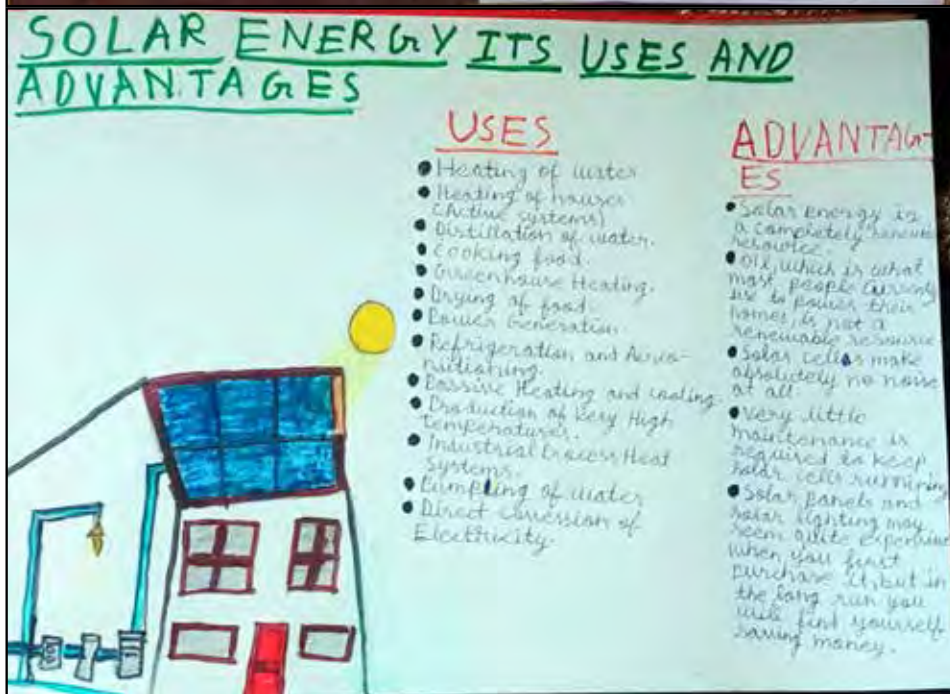 SOLAR ENERGY ITS USES AND
ADVANTAGES
USES
Heating of water
Heating of houses
(Active systems)
Distillation of water.
Cooking food.
Greenhouse Heating.
Drying of food.
Power Generation
Refrigeration and
Passive Heating and cooling.
Production of Very High
Temperatures.
Industrial Process Heat
Systems.
Pumping of water
Direct of
Electricity.
ADVANTAG-
ES
Solar energy is
a completely
resource.
Oil, which is what
most people
use to power their
homes, is not a
renewable resource
Solar cells make
absolutely no noise
at all.
Very little
maintenance is
required to keep
solar cells running
Solar panels and
solar lighting may
seem quite expensive
when you first
purchase it, but in
the long run you
will find yourself
saving money.